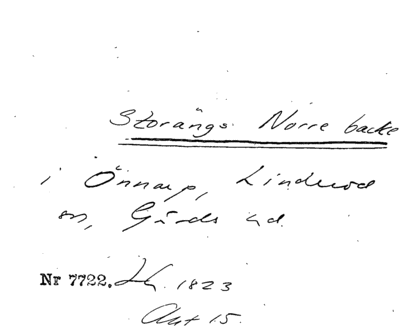 Storängs Norre backe
i Önnarp, Linderöd
sn, Gärds hd.
Nr 7722. Lh. 1823
Akt 15.